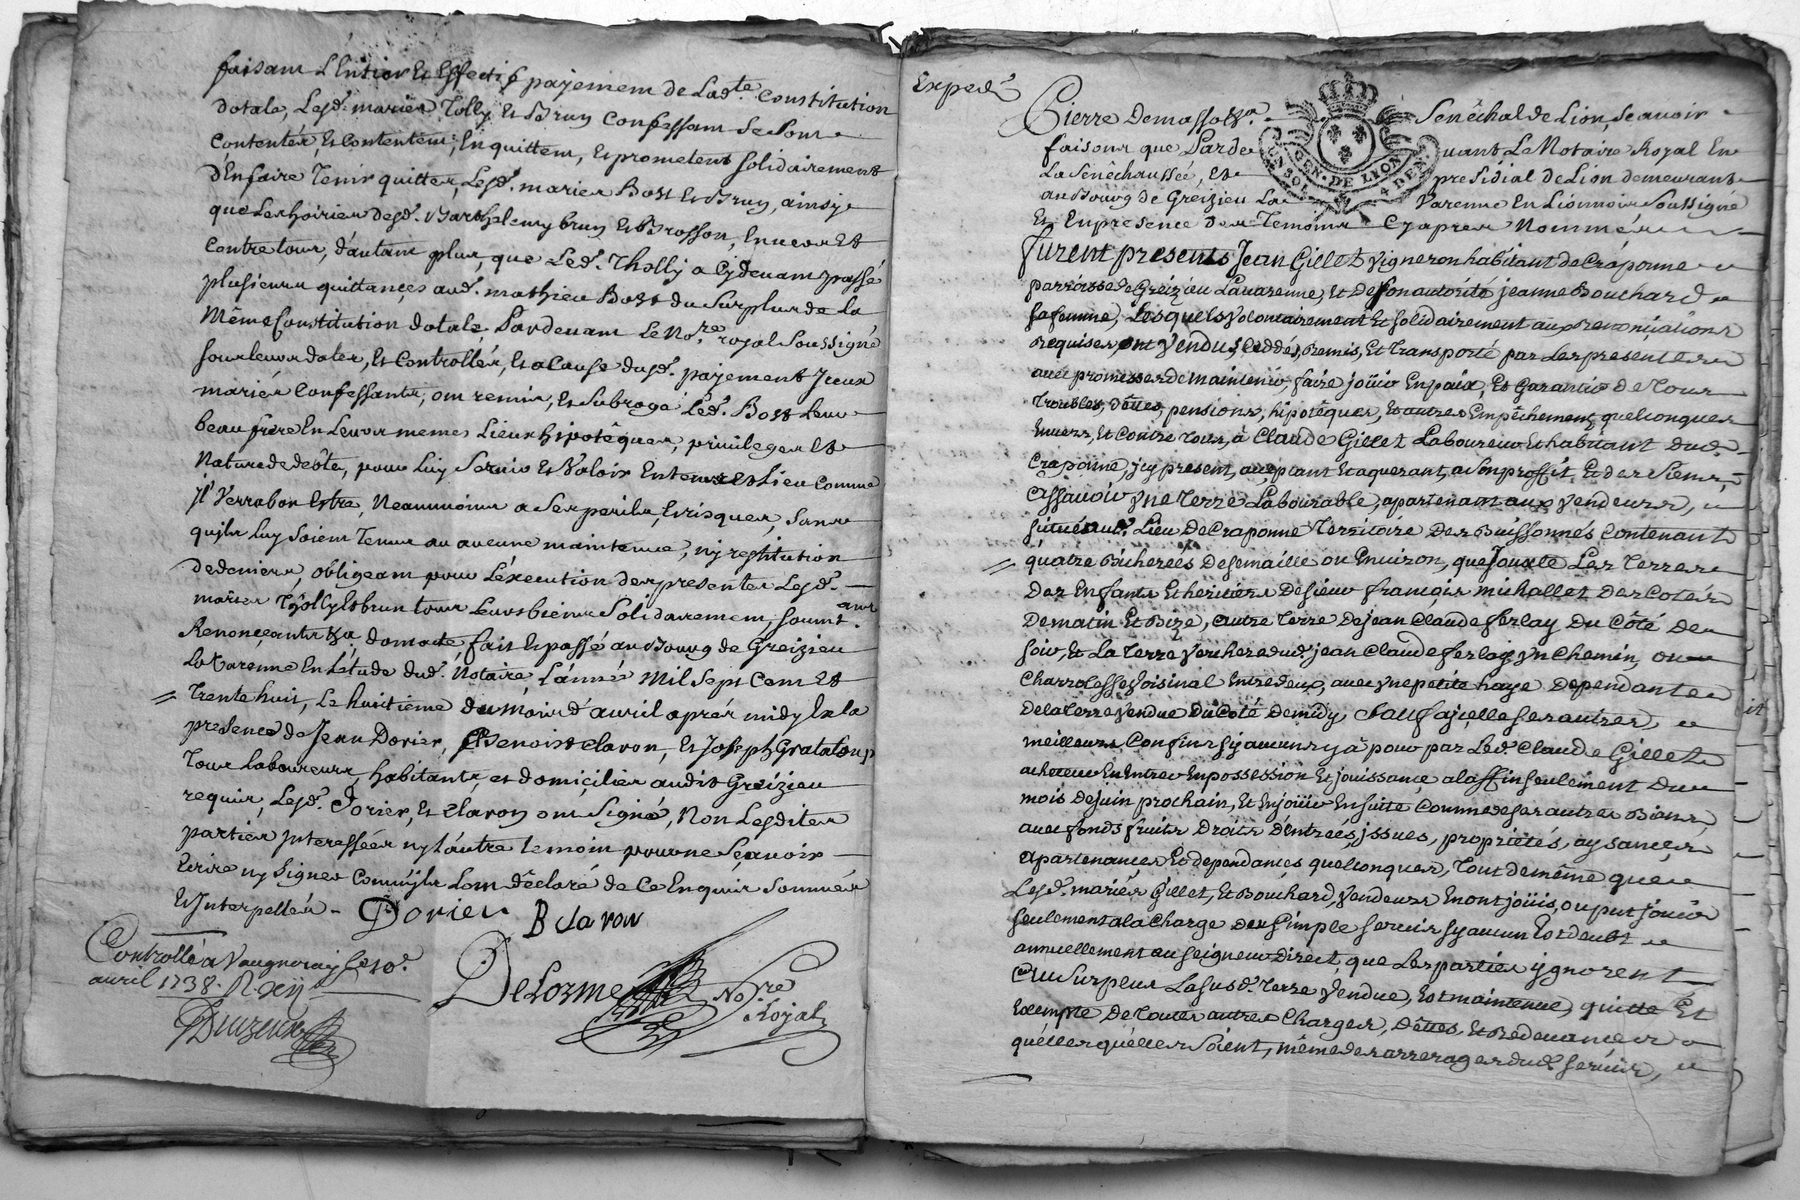 faisant L'Entier et Effectif payement de Lad.te Constitution
dotale, Lesd. mariés Tolly et Brun Confessant se sont
Contentés, et contentent, En quittent, et prometent solidairement
d'En faire Tenir quittes, Lesd. mariés Bost et Brun, ainsy
que Les hoiries desd. Barthelemy brun et Brosson, Envers et
Contre tous, d'autant plus, que Led. Tholly a Cydevant passé
plusieurs quittances aud. mathieu Bost du Surplus de la
Même Constitution dotale, Pardevant Le No.re royal Soussigné
sous leurs dates, et Controllés, et a Cause dusd. payement Iceux
mariés Confessants, ont remis, et Subrogé Led. Bost Leur
beau frere En Leurs memes Lieux hipotêques, privileges et
Nature de debte, pour Luy Servir et Valoir En tems et Lieu Comme
jl Verra bon Estre, Neanmoins a Ses perils, et risques, Sans
qu'ils Luy Soient Tenus au aucune maintenue, ny restitution
de deniers, obligeant pour L'éxecution des presentes Lesd.
mariés Tholly et brun tous Leurs biens Solidairement, soumis.ons
Renonçeants &a dont acte, fait et passé au Bourg de Greizieu
La Varenne En L'étude dud. Notaire, L'année Mil Sept Cent et
Trente huit, Le huitième du mois d'avril après midy En la
presence de Jean Dorier, Benoist Claron, et Joseph Grataloup
Tous Laboureurs, habitants, et domiçiliés audit Greizieu
requis, Lesd. Dorier, et Claron ont Signé, Non Lesdites
parties Interessées ny L'autre temoin pour ne Sçavoir
Ecrire ny Signer Comm'ils L'ont déclaré de Ce Enquis Sommés
et Interpellés - Dorier B Claron
Controllé a Vaugneray Le 10.e
avril 1738. R. xij s
DeLorme No.re
Royal
Exped.é
Pierre Demassos &a Senêchal de Lion, Sçavoir
GEN. DE LION
UN SOL 4 DEN.
faisons que Pardevant Le Notaire Royal En
La Senêchaussée, et presidial de Lion demeurant
au Bourg de Greizieu La Varenne En Lionnois Soussigné
Et En presence des Temoins Cyapres Nommés
Furent presents Jean Gillet Vigneron habitant de Craponne
parroisse de Greizieu Lavarenne, Et De son autorité jeanne Bouchard
sa femme, Lesquels volontairement Et solidairement aux renonçiations
Requises, ont Vendus, Ceddés, Remis, Et Transporté par Les presentes
avec promesses de maintenir, faire joüir En paix, Et garantir de Tous
Troubles, dêttes, pensions, hipotêques, et autres Empêchements quelconques
Envers, Et Contre Tous, à Claude Gillet Laboureur Et habitant Dud.
Craponne, jcy present, acceptant Et aquerant, a Son proffit, Et des Siens,
Assavoir Vne Terre Labourable, apartenant aux Vendeurs,
situé aud. Lieu De Craponne Territoire Des Buissonnés Contenant
quatre Bicherées De semaille ou Environ, que Jouxte Les Terres
Des Enfants Et heritiers De sieur françois michallet Des Cotés
De matin Et Bize, autre Terre De jean Claude ferlay Du Côté De
soir, Et La Terre Verchere dud. jean Claude ferlay Vn Chemin, ou
Charrolesse Voisinal Entredeux, avec Vne petite haye Dependante
De la Terre Vendue Du Coté De midy, Sauf a jcelle Ses autres,
meilleurs Confins sy aucuns y à pour par Led. Claude Gillet
acheteur En Entrer En possession Et jouissance a la ffin seulement Du
mois De juin prochain, Et En joüir Ensuite Comme de ses autres Biens,
avec fonds fruits Droits D'entrées, jssues, propriétés, aysances
apartenançes Et dependançes quelconques, Tout de même que
Lesd. mariés Gillet, Et Bouchard, Vendeurs En ont joüis, ou put joüir
seulement a la Charge Des Simple servis sy aucun Est deubt
annuellement au seigneur Direct que Les parties jgnorent
Au Surplus La susd. Terre Vendue, Est maintenue, quitte Et
Exempte De Toutes autres Charges, Dêttes, Et Redevances
quelles qu'elles Soient, même des arrerages dud. Servis,